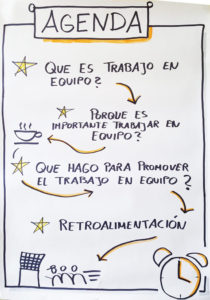 AGENDA
QUE ES TRABAJO EN
EQUIPO?
PORQUE ES
IMPORTANTE TRABAJAR EN
EQUIPO?
QUE HAGO PARA PROMOVER
EL TRABAJO EN EQUIPO?
RETROALIMENTACIÓN